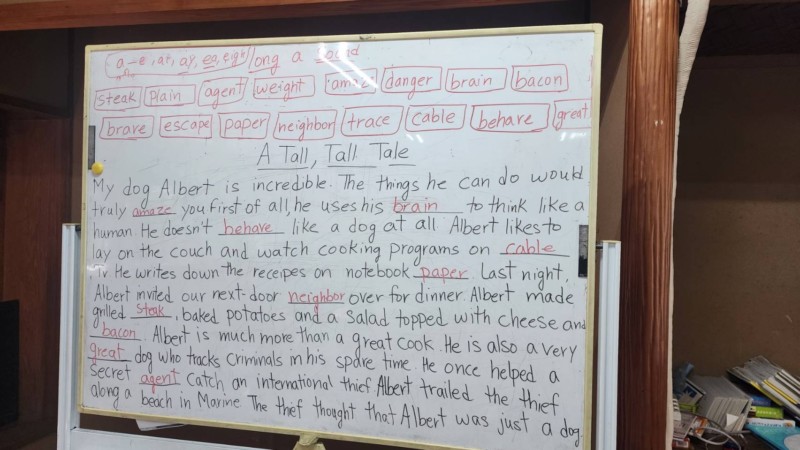 a-e, ai, ay, ea, eigh long a sound
steak plain agent weight amaze danger brain bacon
brave escape paper neighbor trace cable behave great
A Tall, Tall Tale
My dog Albert is incredible. The things he can do would
truly amaze you first of all, he uses his brain to think like a
human. He doesn't behave like a dog at all. Albert likes to
lay on the couch and watch cooking programs on cable
TV. He writes down the receipes on notebook paper. Last night,
Albert invited our next-door neighbor over for dinner. Albert made
grilled steak, baked potatoes and a salad topped with cheese and
bacon. Albert is much more than a great cook. He is also a very
great dog who tracks criminals in his spare time. He once helped a
secret agent catch an international thief. Albert trailed the thief
along a beach in Marine. The thief thought that Albert was just a dog.